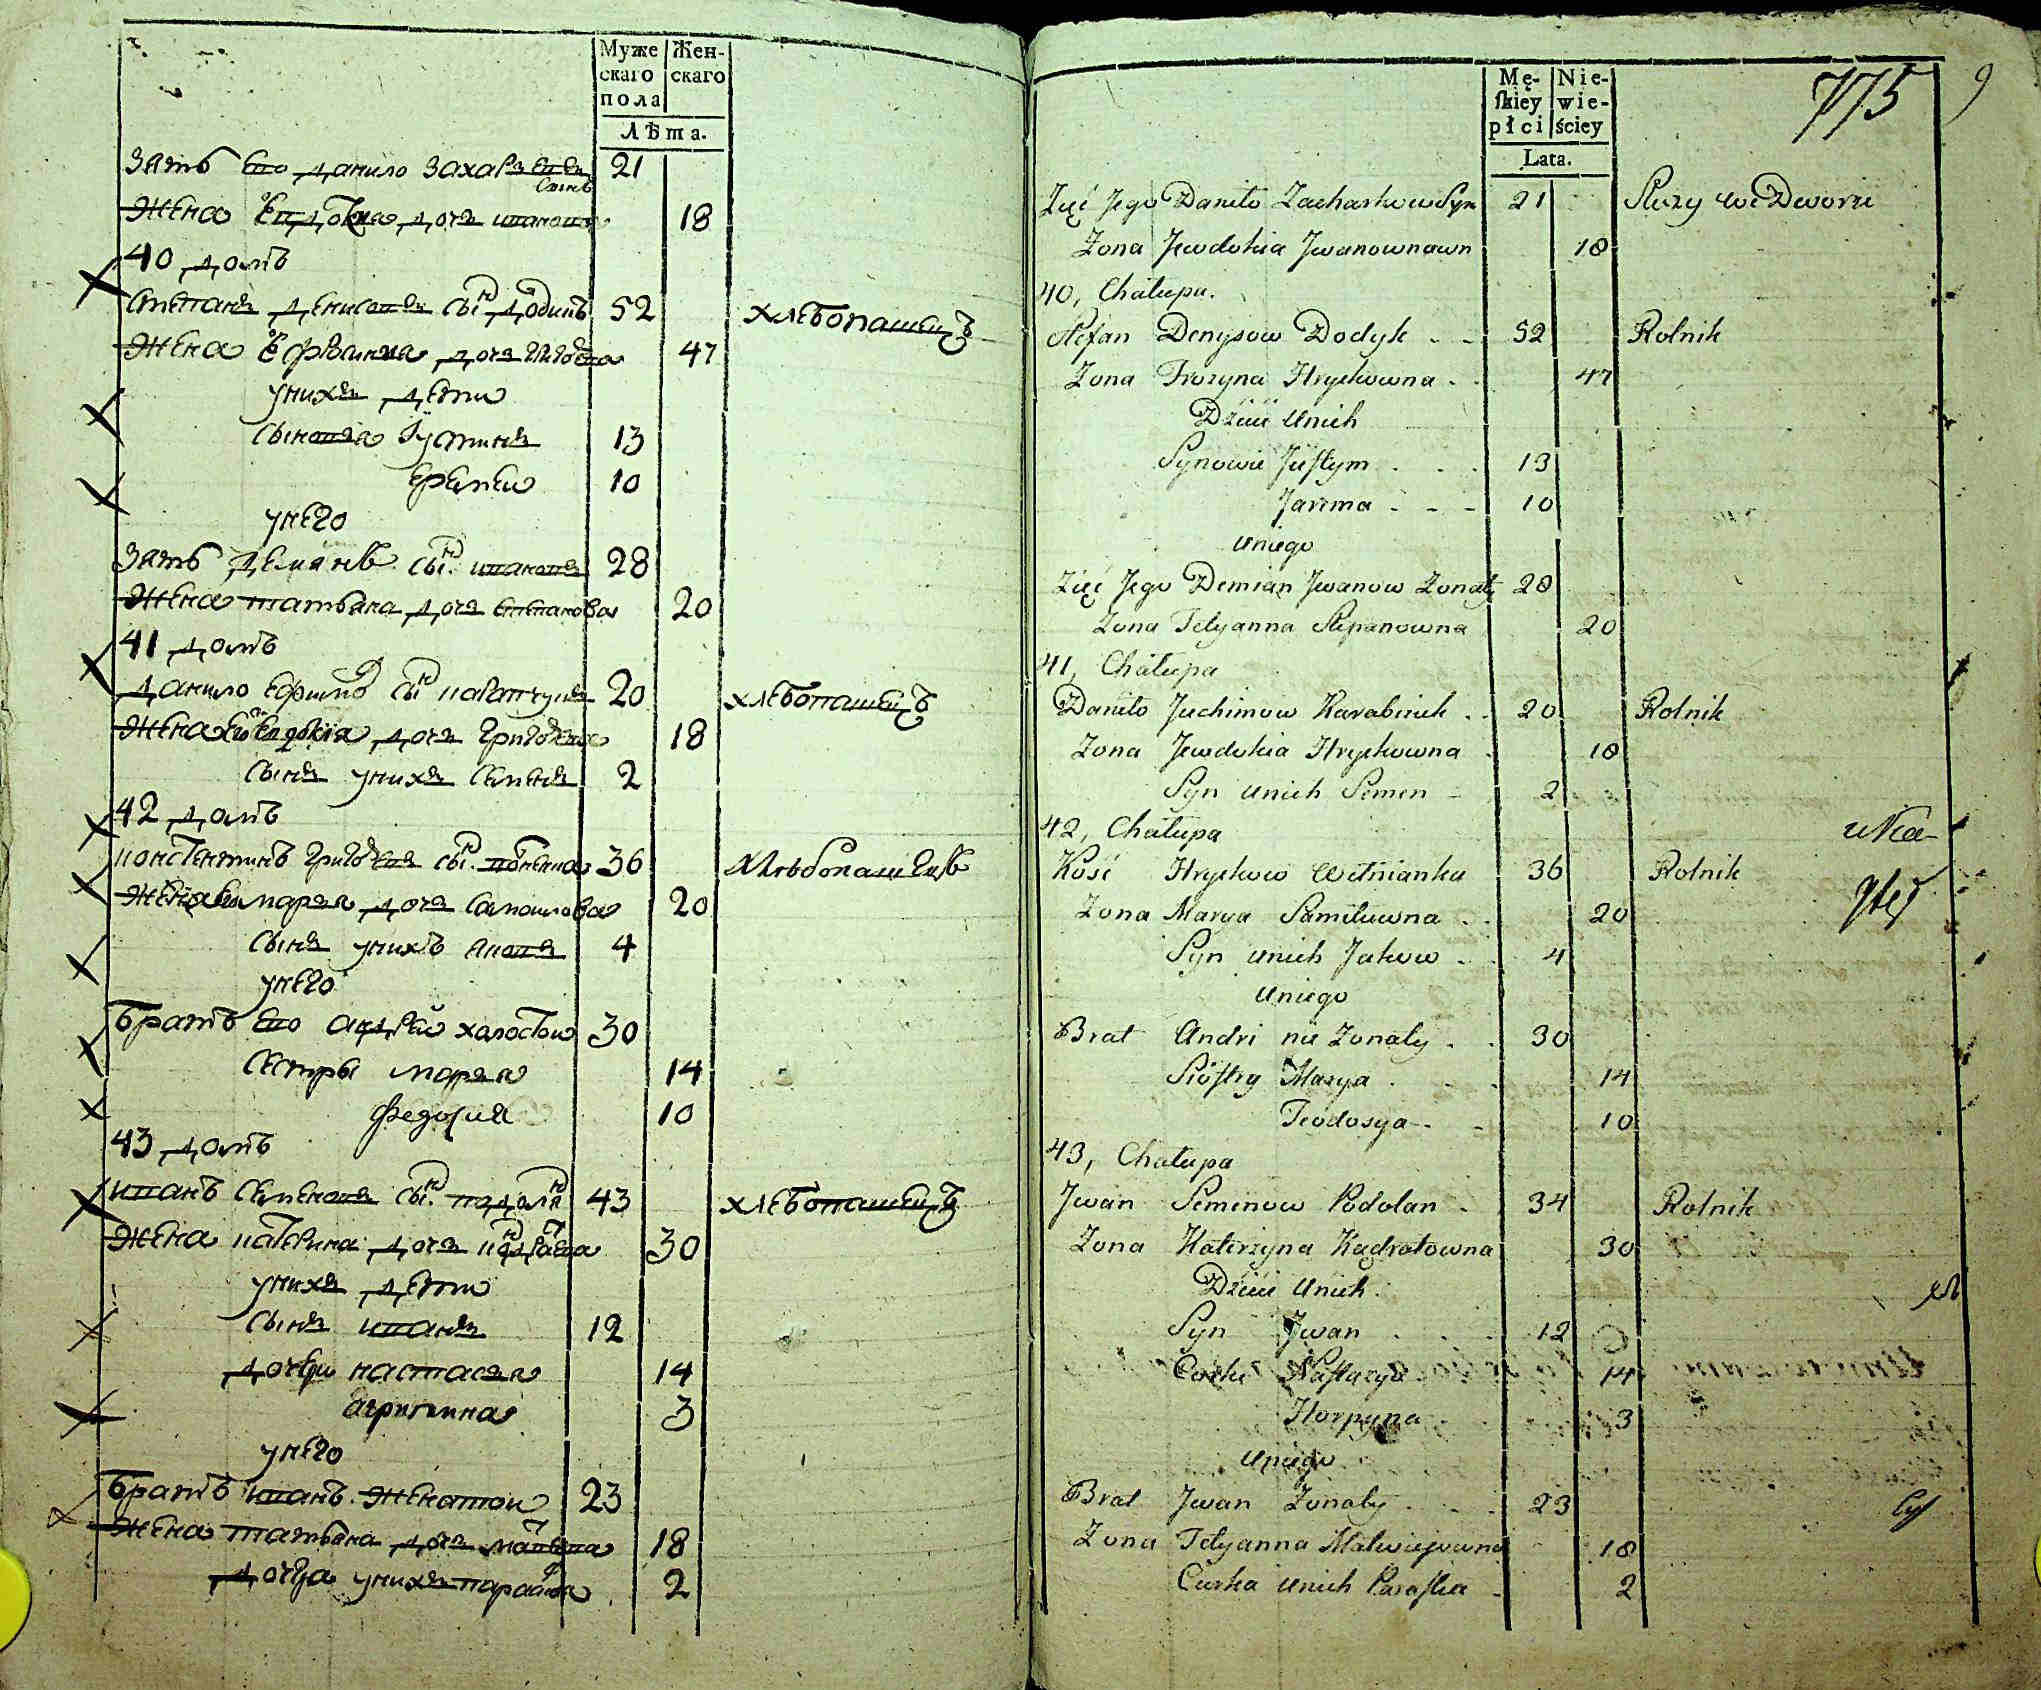 Муже Жен-
скаго скаго
пола
Лѣта.
Зять Его Данило Захарвеви Синъ 21
Жена Евдокиа доча иванова 18
40 домъ
Степанъ Денисовъ сын Додикъ 52 хлебопашецъ
Жена Ефросиниа доча григорева 47
унихъ дети
Сыновя Iустинъ 13
Еремеи 10
унего
Зять Демянъ сын ивановъ 28
Жена татьяна доча степанова 20
41 домъ
Данило Ефимов сын 20 хлебопашецъ
Жена Евдокиа доча григорева 18
сынъ унихъ Семенъ 2
42 домъ
константинъ григорева сын 36 хлѣбопашецъ
Жена маря доча самоилова 20
Сынъ унихъ яковъ 4
унего
братъ Его андрей холостои 30
Сестры маря 14
Федосия 10
43 домъ
иванъ Семеновъ сын подолян 43 хлебопашецъ
Жена катерина доча кондратева 30
унихъ дети
Сынъ иванъ 12
дочери настася 14
агрипина 3
унего
братъ иванъ женатои 23
Жена татьяна доча матвеева 18
дочка унихъ параска 2
775 9
Mę- Nie-
skiey wie-
płci ściey
Lata.
Zięć Jego Daniło Zacharkow Syn 21 Służy we Dworze
Zona Jewdokia Jwanownawn 18
40, Chałupa.
Stefan Denysow Dodyk - - 52 Rolnik
Zona Frozyna Hryckowna - 47
Dzieci unich
Synowie Justym . . . 13
Jarema - - - 10
uniego
Zięć Jego Demian Jwanow Zonaty 28
Zona Tetyanna Stepanowna 20
41, Chałupa
Daniło Juchimow Karabinik . . 20 Rolnik
Zona Jewdokia Hryckowna 18
Syn unich Semen - 2
42, Chałupa
Kość Hryckow Wiśnianka 36 Rolnik
Zona Marya Samiłuwna . . 20
Syn unich Jakow . . 4
uniego
Brat Andri nie Zonaty . . 30
Siostry Marya . . . 14
Teodosya - - 10
43, Chałupa
Jwan Semenow Podolan - 34 Rolnik
Zona Katerzyna Kądratowna 30
Dzieci unich
Syn Jwan . . . 12
Corki Nastazya 14
Horpyna 3
uniego
Brat Jwan Zonaty . . . 23
Zona Tetyanna Matwiejowna 18
Curka unich Paraska - 2